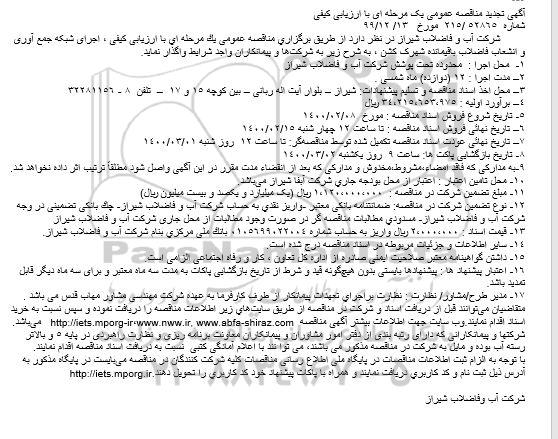 آگهی تجدید مناقصه عمومی یک مرحله ای با ارزیابی کیفی
شماره ۲۱۵/۵۲۸۶۵ مورخ ۹۹/۱۲/۱۳
شرکت آب و فاضلاب شیراز در نظر دارد از طریق برگزاري مناقصه عمومی یك مرحله اي با ارزیابی کیفی ، اجرای شبکه جمع آوری
و انشعاب فاضلاب باقیمانده شهرک گشن ، به شرح زیر به شرکت‌ها و پیمانکاران واجد شرایط واگذار نماید.
۱- محل اجرا : محدوده تحت پوشش شرکت آب و فاضلاب شیراز
۲- مدت اجرا : ۱۲ (دوازده) ماه شمسی .
۳- محل اخذ اسناد مناقصه و تسلیم پیشنهادات: شیراز – بلوار آیت اله ربانی – بین کوچه ۱۵ و ۱۷ – تلفن ۸ - ۳۲۲۸۱۱۵۶
۴- برآورد اولیه : ۳۴،۲۱۵،۶۵۳،۹۷۵ ریال
۵- تاریخ شروع فروش اسناد مناقصه : مورخ ۱۴۰۰/۰۲/۰۸
۶- تاریخ نهائی فروش اسناد مناقصه : تا ساعت ۱۲ چهار شنبه ۱۴۰۰/۰۲/۱۵
۷- تاریخ نهائی عودت اسناد مناقصه تکمیل شده توسط مناقصه‌گر: تا ساعت ۱۲ روز شنبه ۱۴۰۰/۰۳/۰۱
۸- تاریخ بازگشایی پاکت ها: ساعت ۹ روز یکشنبه ۱۴۰۰/۰۳/۰۲
۹-به مدارکی که فاقد امضاء،مشروط،مخدوش و مدارکی که بعد از انقضاء مدت مقرر در این آگهی واصل شود مطلقاً ترتیب اثر داده نخواهد شد.
۱۰- محل تامین اعتبار : اعتبار از محل بودجه جاري شرکت آبفا شیراز می‌باشد.
۱۱- مبلغ تضمین شرکت در مناقصه : ۱،۱۲۰،۰۰۰،۰۰۰ ریال (یک میلیارد و یکصد و بیست میلیون ریال)
۱۲- نوع تضمین شرکت در مناقصه: ضمانتنامه بانکي معتبر -واریز نقدي به حساب شرکت آب و فاضلاب شیراز- چك بانکي تضمینی در وجه
شرکت آب و فاضلاب شیراز- مسدودي مطالبات مناقصه گر در صورت وجود مطالبات از محل جاری شرکت آب و فاضلاب شیراز
۱۳- قیمت اسناد : ۲،۰۰۰،۰۰۰ ریال واریز به حساب شماره ۰۱۰۵۶۹۹۰۲۲۰۰۴ بانك ملي مرکزي بنام شرکت آب و فاضلاب شیراز.
۱۴- سایر اطلاعات و جزئیات مربوطه در اسناد مناقصه درج شده است.
۱۵- داشتن گواهینامه معتبر صلاحیت ایمنی صادره از اداره کل تعاون ، کار و رفاه اجتماعی الزامی است.
۱۶- اعتبار پیشنهاد ها : پیشنهادها بایستی بدون هیچ‌گونه قید و شرط از تاریخ بازگشایی پاکات به مدت سه ماه معتبر و برای سه ماه دیگر قابل
تمدید باشد.
۱۷- مدیر طرح/مشاور/ نظارت : نظارت براجرای تعهدات پیمانکار از طرف کارفرما به عهده شرکت مهندسی مشاور مهاب قدس می باشد .
متقاضیان می‌توانند قبل از دریافت اسناد و شرکت در مناقصه از طریق سایت‌های زیر اطلاعات مناقصه را دریافت نموده و سپس نسبت به خرید
اسناد اقدام نمایند.وب سایت جهت اطلاعات بیشتر آگهي مناقصه http://iets.mporg-irوwww.nww.ir, www.abfa-shiraz.com می‌باشد.
شرکتها و پیمانکارانی که دارای رتبه بندی از دفتر امور مشاوران و پیمانکاران معاونت برنامه ریزی و نظارت راهبردی در پایه ۵ و بالاتر
رسته آب بوده و مایل به شرکت در مناقصه مذکور می باشند، می توانند با اعلام آمادگی کتبی نسبت به دریافت اسناد مناقصه اقدام نمایند.
با توجه به الزام ثبت اطلاعات مناقصات در پایگاه ملي اطلاع رسانی مناقصات کلیه شرکت کنندگان در مناقصه می‌بایست در پایگاه مذکور به
آدرس ذیل ثبت نام و کد کاربري دریافت نمایند و همراه با پاکات پیشنهاد خود کد کاربري را تحویل دهند.http://iets.mporg.ir
شرکت آب وفاضلاب شیراز